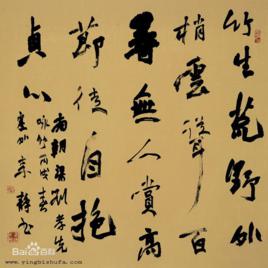 竹生荒野外
梢雲聳百
尋無人賞高
節徒自抱
貞心
南朝梁劉孝先
詠竹丙戌春
Bai百科
www.yingbishufa.com